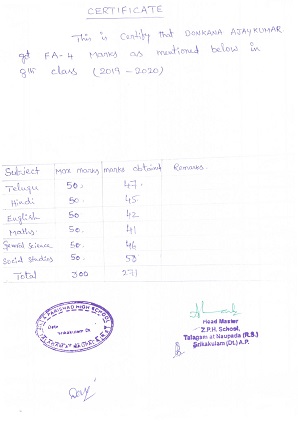 CERTIFICATE
This is Certify that DONKANA AJAYKUMAR
get FA-4 Marks as mentioned below in
8th class (2019-2020)
Subject Max marks marks obtained Remarks
Telugu 50. 47.
Hindi 50 45
English 50 42
Maths 50. 41
General Science 50. 46
Social Studies 50. 50
Total 300 271
PARISHAD HIGH SCHOOL
Date
Srikakulam Dt
Head Master
Z.P.H. School,
Talagam at Naupada (R.S.)
Srikakulam (Dt.) A.P.